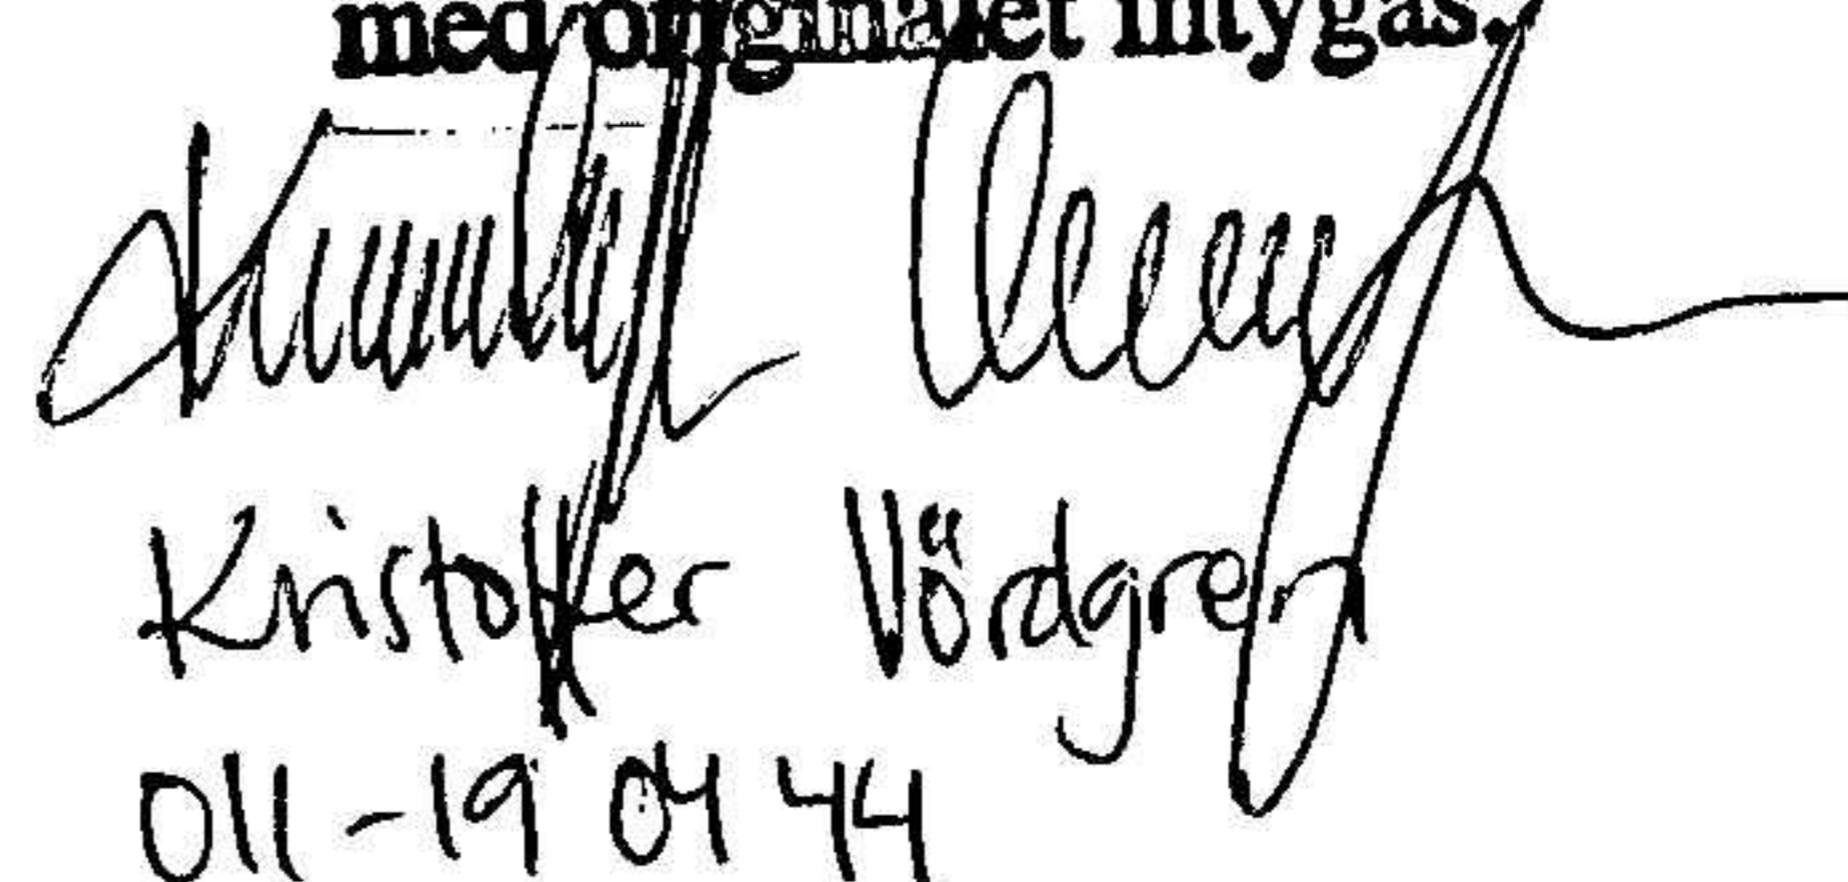 med originalet intygas.
Kristoffer Vördgren
011-19 04 44